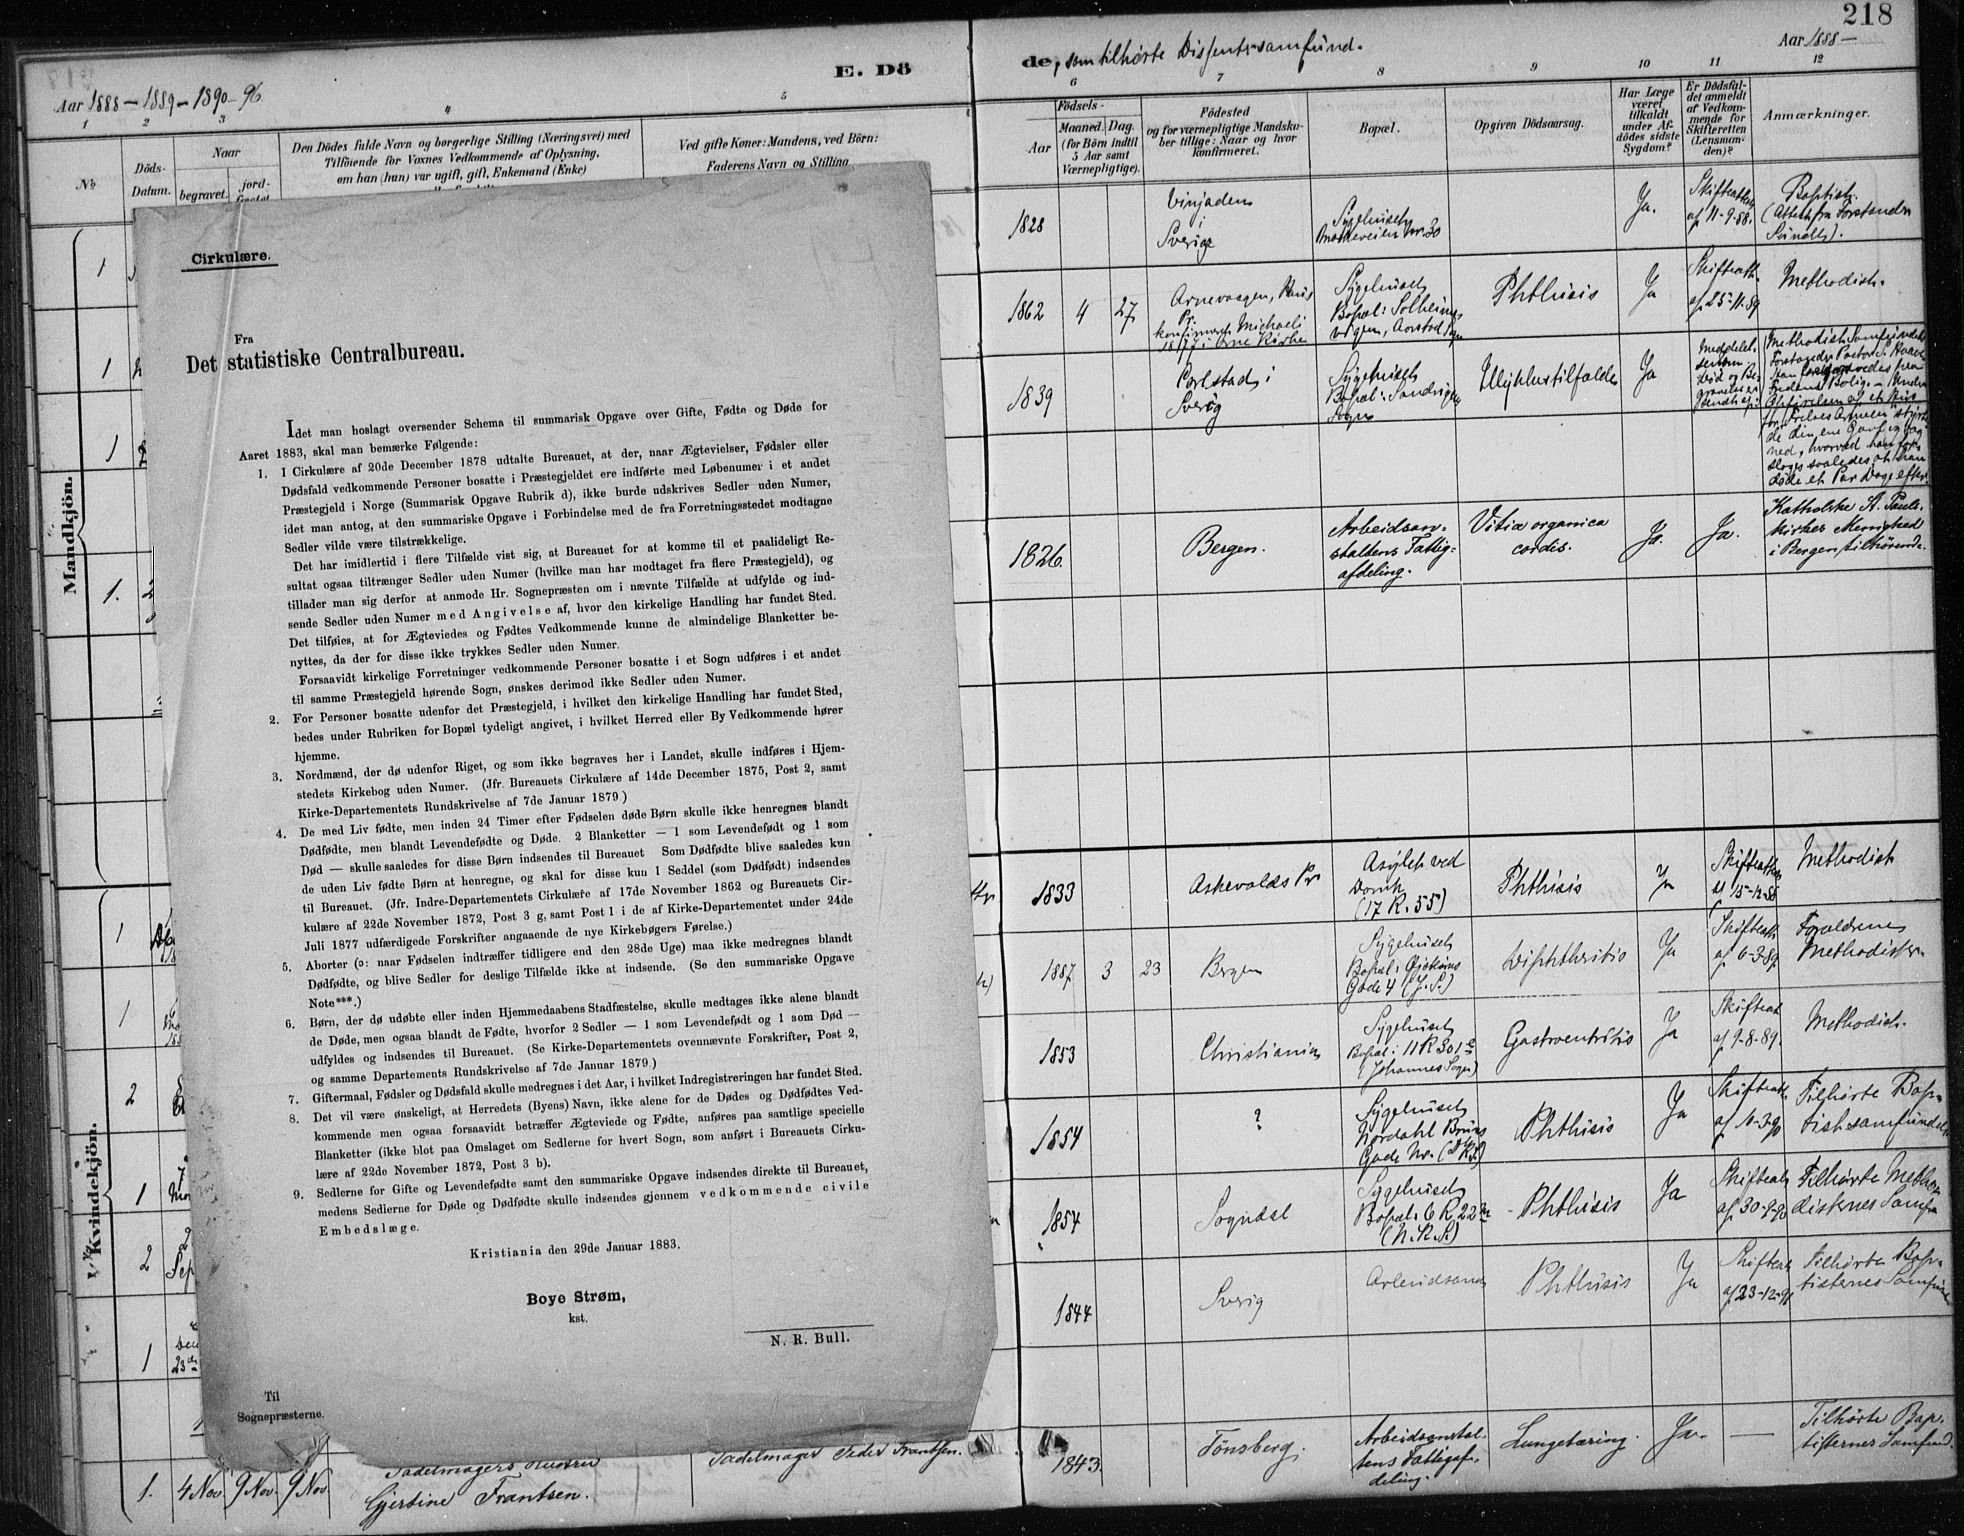 218
E. Dö
de, som tilhørte Dissentersamfund.
Aar 1888 - 1889 - 1890 - 96
Aar 1888 -
1
2
3
4
5
6
7
8
9
10
11
12
No
Döds-
Datum.
Naar
begravet.
jord-
Den Dödes fulde Navn og borgerlige Stilling (Næringsvei) med
Tilföiende for Voxnes Vedkommende af Oplysning,
om han (hun) var ugift, gift, Enkemand (Enke)
Ved gifte Koner: Mandens, ved Börn:
Faderens Navn og Stilling
Födsels-
Aar
Maaned. Dag.
(for Börn indtil
5 Aar samt
Værnepligtige).
Födested
og for værnepligtige Mandska-
ber tillige: Naar og hvor
konfirmeret.
Bopæl.
Opgiven Dödsaarsag.
Har Læge
været
tilkaldt
under Af-
dödes sidste
Sygdom?
Er Dödsfal-
det anmeldt
af Vedkom-
mende for
Skifteretten
(Lensman-
den)?
Anmærkninger.
Mandkjön.
Kvindekjön.
Cirkulære.
Fra
Det statistiske Centralbureau.
Idet man hoslagt oversender Schema til summarisk Opgave over Gifte, Fødte og Døde for
Aaret 1883, skal man bemærke Følgende:
1. I Cirkulære af 20de December 1878 udtalte Bureauet, at der, naar Ægtevielser, Fødsler eller
Dødsfald vedkommende Personer bosatte i Præstegjeldet ere indførte med Løbenumer i et andet
Præstegjeld i Norge (Summarisk Opgave Rubrik d), ikke burde udskrives Sedler uden Numer,
idet man antog, at den summariske Opgave i Forbindelse med de fra Forretningsstedet modtagne
Sedler vilde være tilstrækkelige.
Det har imidlertid i flere Tilfælde vist sig, at Bureauet for at komme til et paalideligt Re-
sultat ogsaa tiltrænger Sedler uden Numer (hvilke man har modtaget fra flere Præstegjeld), og
tillader man sig derfor at anmode Hr. Sognepræsten om i nævnte Tilfælde at udfylde og ind-
sende Sedler uden Numer med Angivelse af, hvor den kirkelige Handling har fundet Sted.
Det tilføies, at for Ægteviedes og Fødtes Vedkommende kunne de almindelige Blanketter be-
nyttes, da der for disse ikke trykkes Sedler uden Numer.
Forsaavidt kirkelige Forretninger vedkommende Personer bosatte i et Sogn udføres i et andet
til samme Præstegjeld hørende Sogn, ønskes derimod ikke Sedler uden Numer.
2. For Personer bosatte udenfor det Præstegjeld, i hvilket den kirkelige Handling har fundet Sted,
bedes under Rubriken for Bopæl tydeligt angivet, i hvilket Herred eller By Vedkommende hører
hjemme.
3. Nordmænd, der dø udenfor Riget, og som ikke begraves her i Landet, skulle indføres i Hjem-
stedets Kirkebog uden Numer. (Jfr. Bureauets Cirkulære af 14de December 1875, Post 2, samt
Kirke-Departementets Rundskrivelse af 7de Januar 1879)
4. De med Liv fødte, men inden 24 Timer efter Fødselen døde Børn skulle ikke henregnes blandt
Dødfødte, men blandt Levendefødte og Døde. 2 Blanketter — 1 som Levendefødt og 1 som
Død — skulle saaledes for disse Børn indsendes til Bureauet Som Dødfødte blive saaledes kun
de uden Liv fødte Børn at henregne, og skal for disse kun 1 Seddel (som Dødfødt) indsendes
til Bureauet. (Jfr. Indre-Departementets Cirkulære af 17de November 1862 og Bureauets Cir-
kulære af 22de November 1872, Post 3 g, samt Post 1 i de af Kirke-Departementet under 24de
Juli 1877 udfærdigede Forskrifter angaaende de nye Kirkebøgers Førelse.)
5. Aborter (ɔ: naar Fødselen indtræffer tidligere end den 28de Uge) maa ikke medregnes blandt
Dødfødte, og blive Sedler for deslige Tilfælde ikke at indsende. (Se den summariske Opgave
Note***.)
6. Børn, der dø udøbte eller inden Hjemmedaabens Stadfæstelse, skulle medtages ikke alene blandt
de Døde, men ogsaa blandt de Fødte, hvorfor 2 Sedler — 1 som Levendefødt og 1 som Død —
udfyldes og indsendes til Bureauet. (Se Kirke-Departementets ovennævnte Forskrifter, Post 2,
og samme Departements Rundskrivelse af 7de Januar 1879)
7. Giftermaal, Fødsler og Dødsfald skulle medregnes i det Aar, i hvilket Indregistreringen har fundet Sted.
8. Det vil være ønskeligt, at Herredets (Byens) Navn, ikke alene for de Dødes og Dødfødtes Ved-
kommende men ogsaa forsaavidt betræffer Ægteviede og Fødte, anføres paa samtlige specielle
Blanketter (ikke blot paa Omslaget om Sedlerne for hvert Sogn, som anført i Bureauets Cirku-
lære af 22de November 1872, Post 3 b).
9. Sedlerne for Gifte og Levendefødte samt den summariske Opgave indsendes direkte til Bureauet,
medens Sedlerne for Døde og Dødfødte skulle indsendes gjennem vedkommende civile
Embedslæge.
Kristiania den 29de Januar 1883.
Boye Strøm,
kst.
N. R. Bull.
Til
Sognepræsterne.
1828
i
Sverige
Sygehuset
Ja.
af 11-9-88.
Baptist.
(Attest fra Forstander
1862 4 27
Arnevaagen, Haus
Pr.
konfirmeret Michaeli
1877 i Arne Kirke
Sygehuset
Bopæl: Solheims
Phthisis
Ja
af 25-11-89
Methodist.
1839
Carlstad i
Sverig
Sygehuset
Bopæl: Sandvigens
Sogn
Ulykkestilfælde
Ja
døde et Par Dage efter.
1826.
Bergen.
Arbeidsan-
staltens Fattig-
afdeling.
Vitia organica
cordis.
Ja.
Ja.
Katholske St. Pauls
Kirkes Menighed
i Bergen tilhørende.
1833
Askevolds Pr
Asylet ved
(17 R. 55)
Phthisis
Ja
Methodist
1887 3 23
Bergen
Sygehuset
Gade 4 (J. S.)
Diphtheritis
Ja
Skifteatt
af 6-3-89
Forældrene
Methodister
1853
Christiania
Sygehuset
Bopæl: 11 R 30
(Johannes Sogn)
Gastroenteritis
Ja
af 9-8-89.
Methodist.
1854
?
Sygehuset
Nordahl Bruns
Gade
Phthisis
Ja
Tilhørte Bap-
tistsamfundet
1854
Sogndal
Sygehuset
Bopæl: 6 R 22
(N. K. S.)
Phthisis
Ja
Tilhørte Metho-
disternes Samfund
1844
Sverig
Phthisis
Ja
Tilhørte Bap-
tisternes Samfund
1. 4 Nov. 9 Nov. 9 Nov.
Sadelmagers Hustru
Gjertine Frantsen.
Sadelmager Peder Frantsen.
1843.
Tönsberg.
Arbeidsanstal-
tens Fattigaf-
deling.
Lungetæring.
Ja.
—
Tilhörte Bap-
tisternes Samfund.